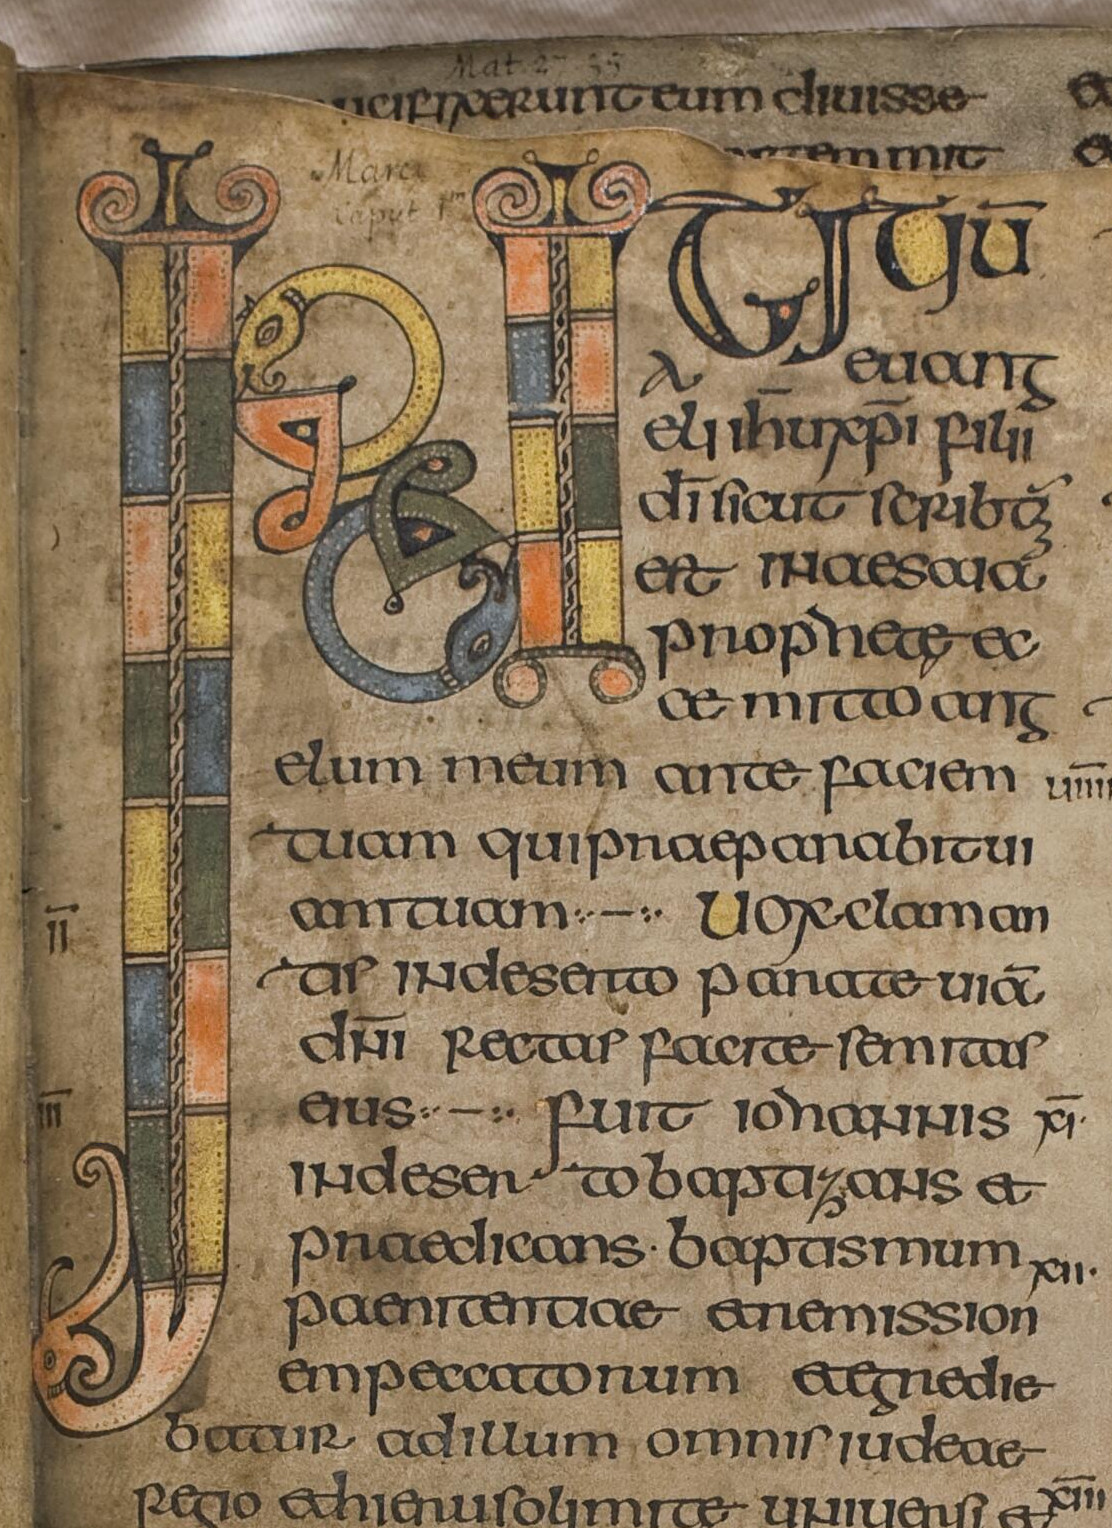 Mat. 27 35
ucifixerunt eum diuisse
Marci
Caput 1m
INITIŪ
euang
elii ih̄u xp̄i filii
dī sicut scribtū
est in aesaia
prophetę ec
ce mitto ang
elum meum ante faciem uiiii
tuam qui praeparabit ui
am tuam :·—:· Uox claman
ii tis in deserto parate uiā
dn̄i rectas facite semitas
iii eius :·—:· fuit iohannis xi·
in deserto baptizans et
praedicans · baptismum xii·
paenitentiae in remission
em peccatorum et egredie
batur ad illum omnis iudeae
regio et hierusolimite uniuersi et xiii